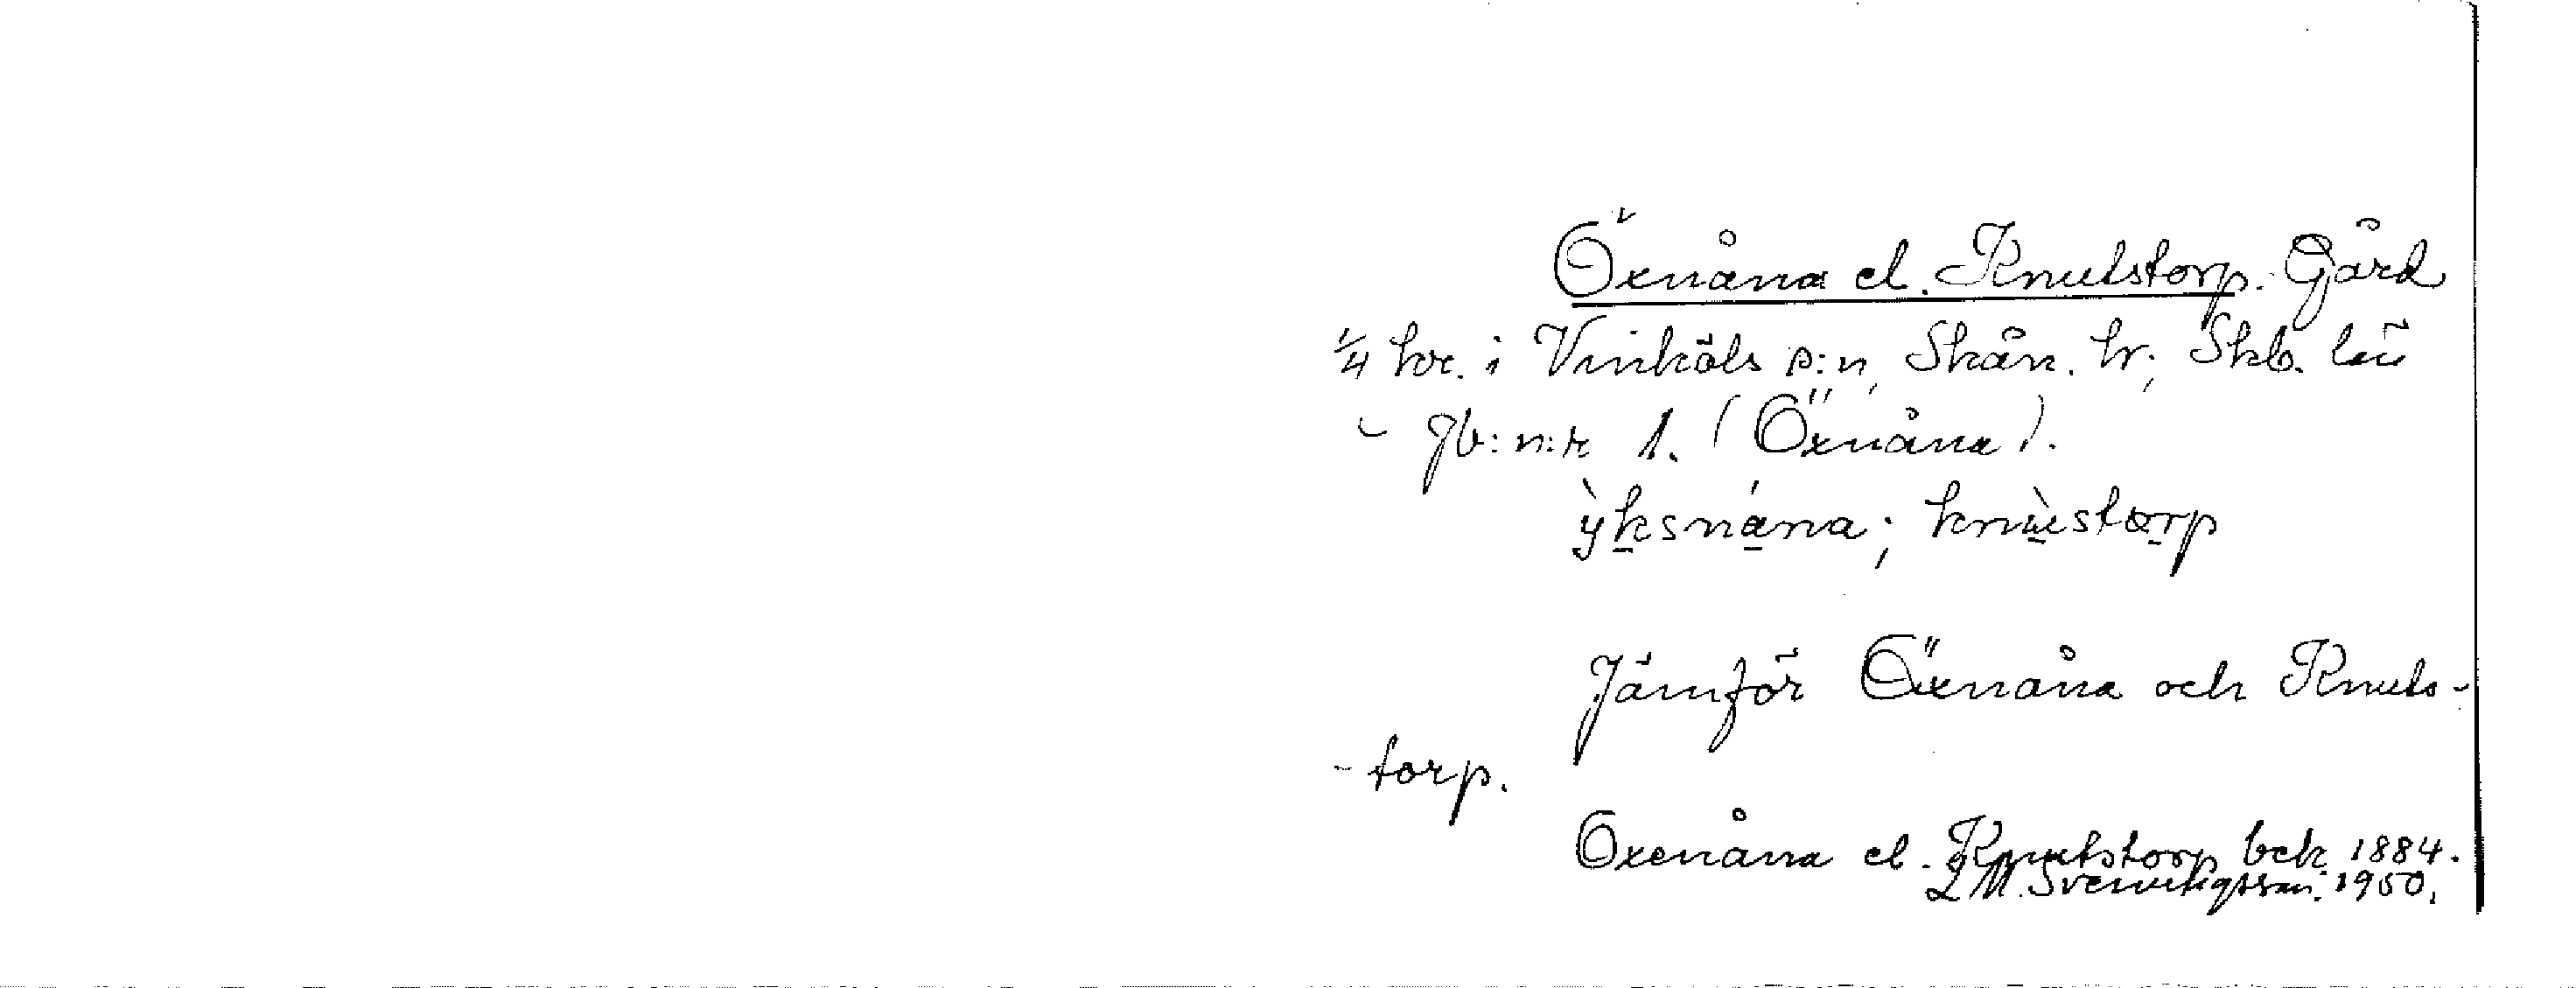 Öxnåna el. Knutstorp. Gård
1/4 kr. i Vinköls s:n, Skån. hr; Skb. län
- Jb: n:r 1. (Öxnåna).
ỳksnána; knùstorp
Jämför Öxnåna och Knuts-
-torp.
Oxenåna el. Knutstorp bek 1884.
1950.